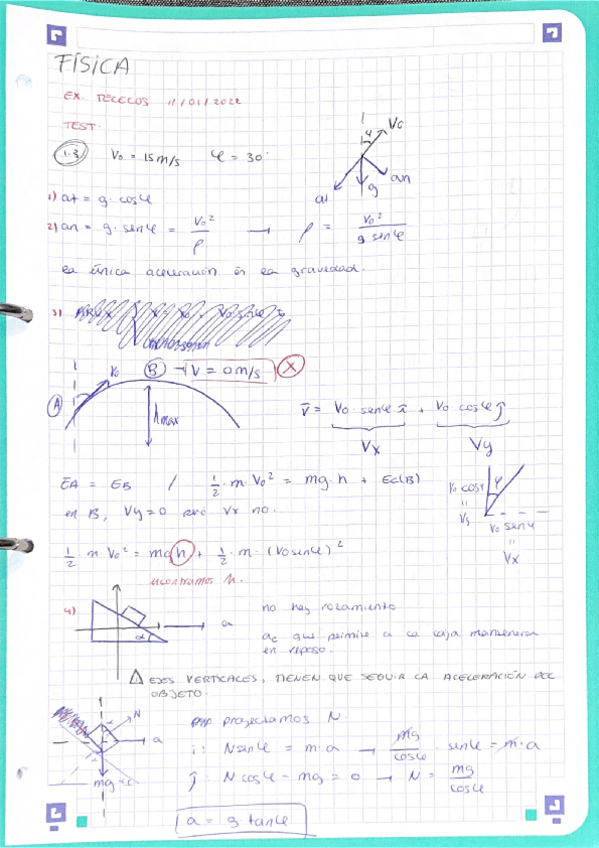 FÍSICA
EX. TELECOS 11/01/2022
TEST.
1-3 V₀ = 15m/s φ = 30°
φ V₀
at g an
1) at = g · cosφ
2) an = g · senφ = V₀²/ρ → ρ = V₀²/g senφ
la única aceleración es la gravedad.
3)
A V₀ B → V = 0m/s X
hmax
v̄ = V₀ · senφ î + V₀ cosφ ĵ
Vx Vy
EA = EB / 1/2 · m · V₀² = mg · h + Ec(B)
en B, Vy = 0 pero Vx no.
V₀ cosφ φ
Vy V₀ senφ
Vx
1/2 · m · V₀² = mgh + 1/2 · m · (V₀ senφ)²
encontramos h.
4) α a
no hay rozamiento
ac que permite a la caja mantenerse
en reposo.
EJES VERTICALES, TIENEN QUE SEGUIR LA ACELERACIÓN DEL
OBJETO.
N a mg
proyectamos N
i: N senφ = m · a → mg/cosφ · senφ = m · a
j: N cosφ - mg = 0 → N = mg/cosφ
a = g · tanφ